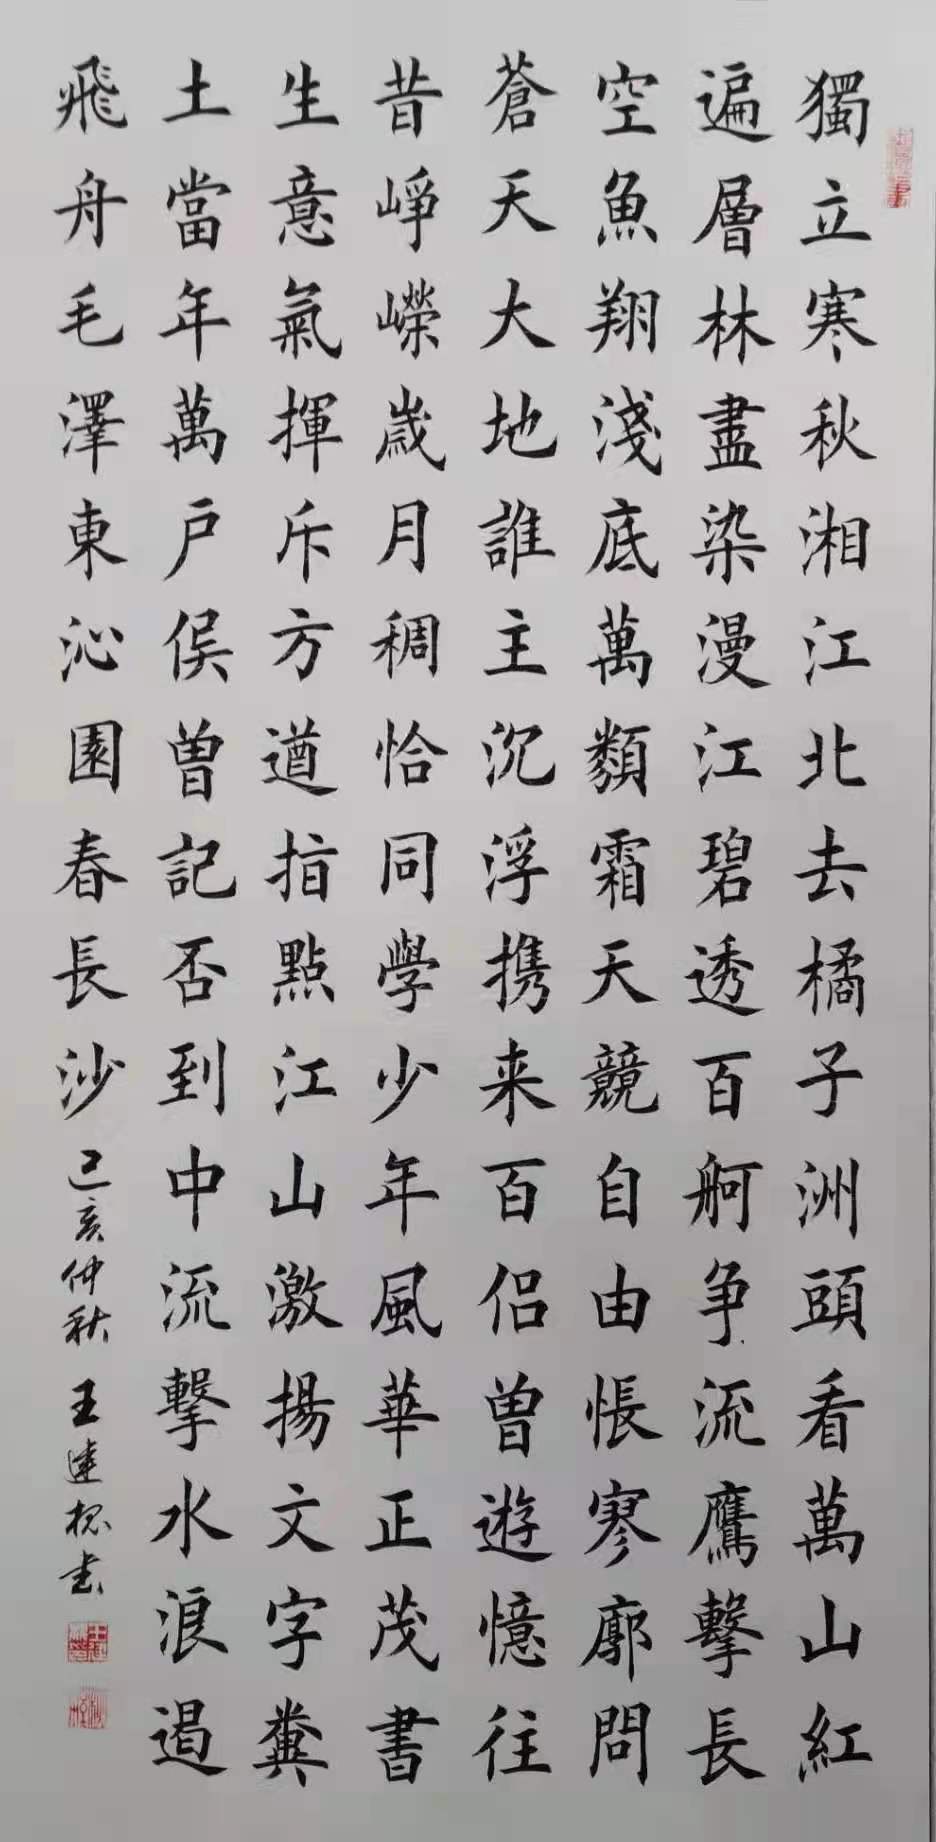 獨立寒秋湘江北去橘子洲頭看萬山紅
遍層林盡染漫江碧透百舸争流鷹擊長
空魚翔淺底萬類霜天競自由悵寥廓問
蒼天大地誰主沉浮携来百侣曾遊憶往
昔崢嶸歲月稠恰同學少年風華正茂書
生意氣揮斥方遒指點江山激揚文字糞
土當年萬戶侯曾記否到中流擊水浪遏
飛舟毛澤東沁園春長沙
己亥仲秋 王建书